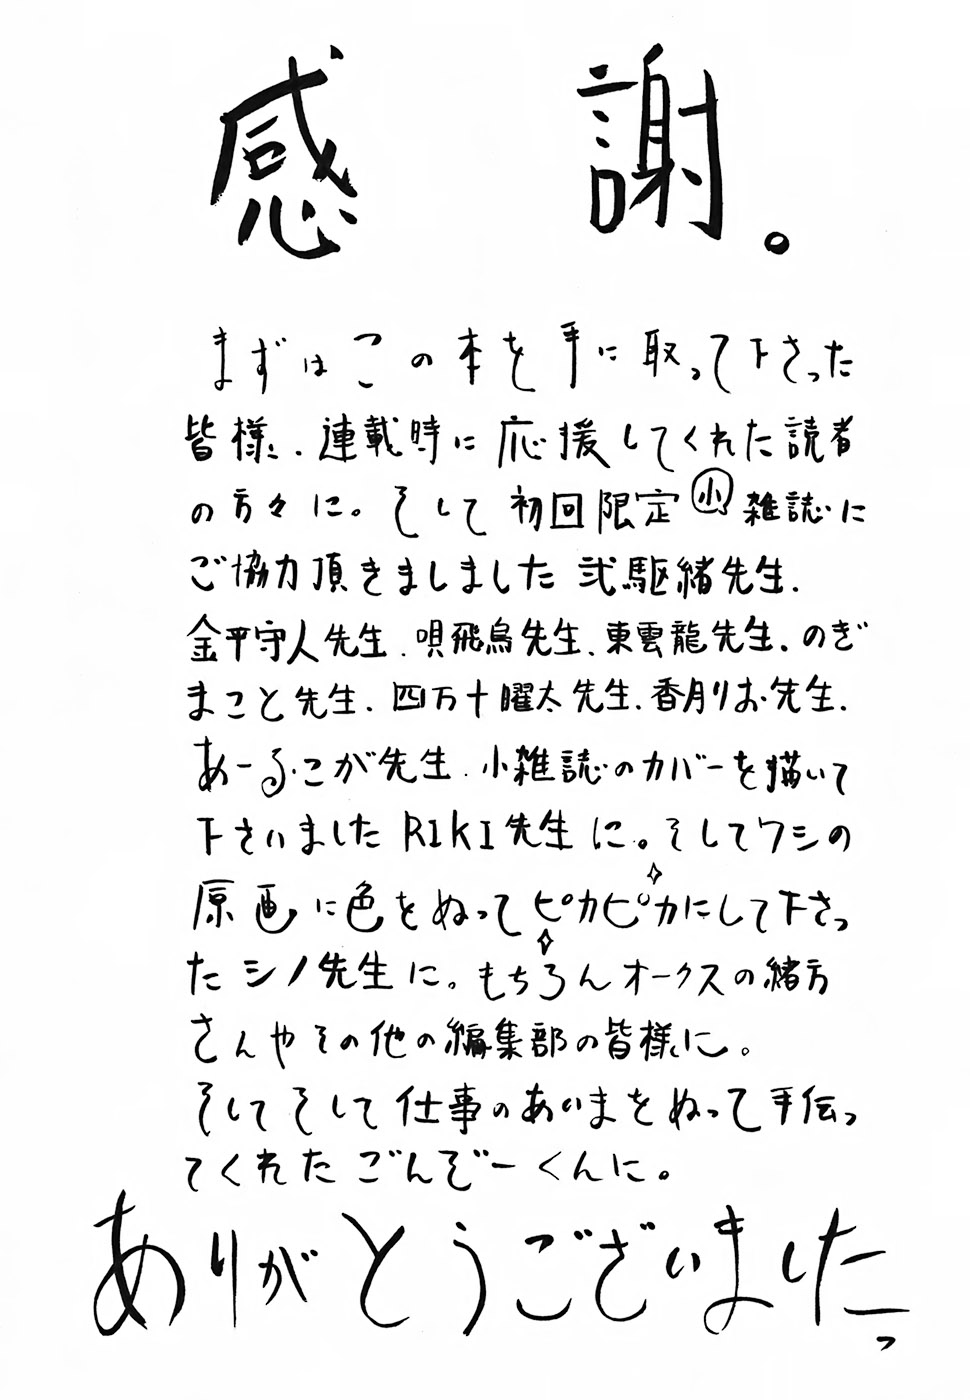 感謝。
まずはこの本を手に取って下さった
皆様、連載時に応援してくれた読者
の方々に。そして初回限定小雑誌に
ご協力頂きましました弐駆緒先生、
金平守人先生、唄飛鳥先生、東雲龍先生、のぎ
まこと先生、四万十曜太先生、香月りお先生、
あーる・こが先生、小雑誌のカバーを描いて
下さいましたRIKI先生に。そしてワシの
原画に色をぬってピカピカにして下さっ
たシノ先生に。もちろんオークスの緒方
さんやその他の編集部の皆様に。
そしてそして仕事のあいまをぬって手伝っ
てくれたごんぞーくんに。
ありがとうございましたっ